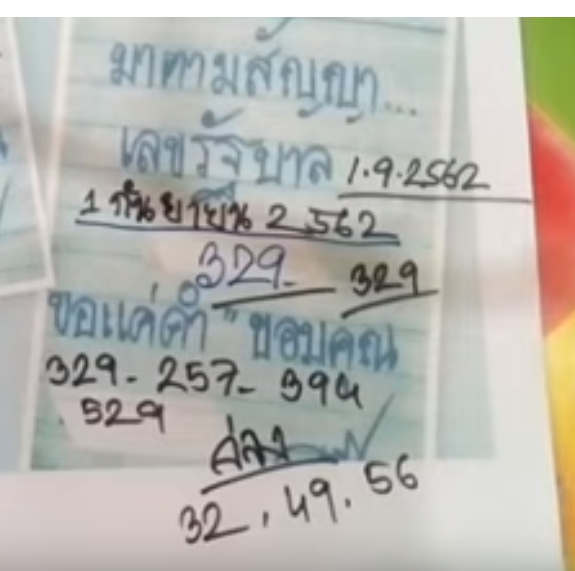 มาตามสัญญา...
เลขรัฐบาล 1.9.2562
1 กันยายน 2562
329- 329
ขอแค่คำ "ขอบคุณ
329- 257- 394
529
ล่าง
32, 49. 56